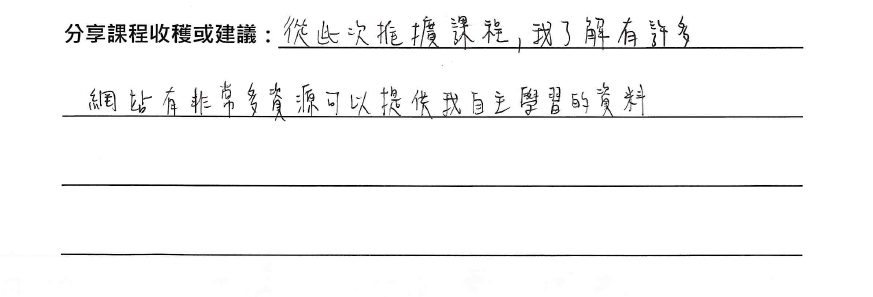 分享課程收穫或建議：從此次推擴課程，我了解有許多
網站有非常多資源可以提供我自主學習的資料